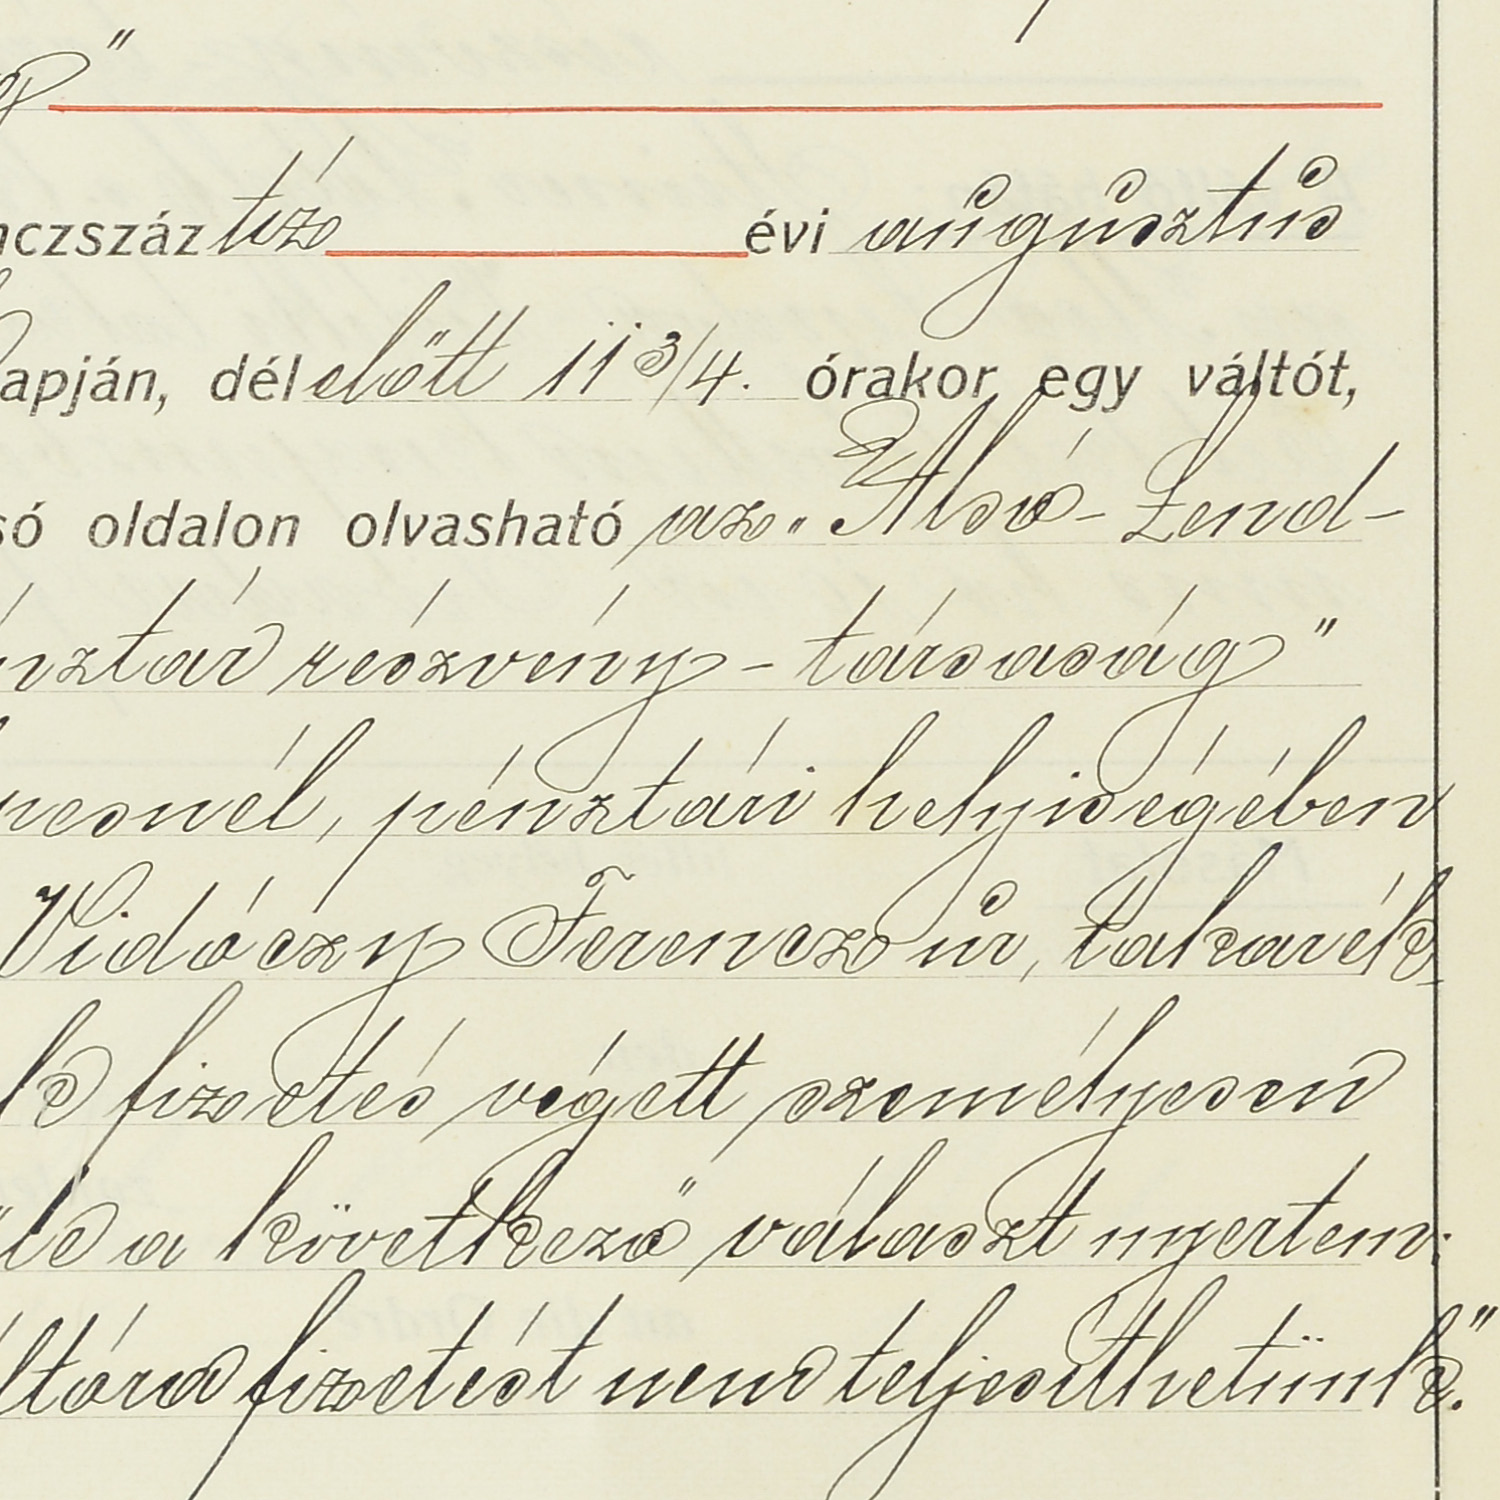 "
nczszáz tíz évi augusztus
apján, délelőtt 11 3/4. órakor egy váltót,
só oldalon olvasható az „Alsó-Lend-
nztár részvény-társaság"
nesnél, pénztári helyiségében
Vidóczy Ferencz úr, takarék-
k fizetés végett személyesen
le a következő választ nyertem:
ltóra fizetést nem teljesíthetünk."